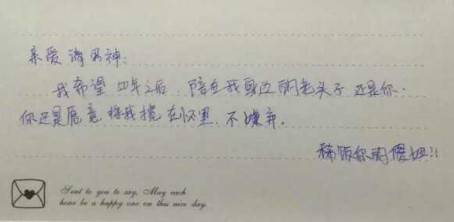 亲爱滴男神:
我希望四年之后,陪在我身边的老头子还是你.
你还是愿意将我搂在怀里,不嫌弃。
稀饭你的傻妞!!
Sent to you to say, May each
hour be a happy one on this nice day.